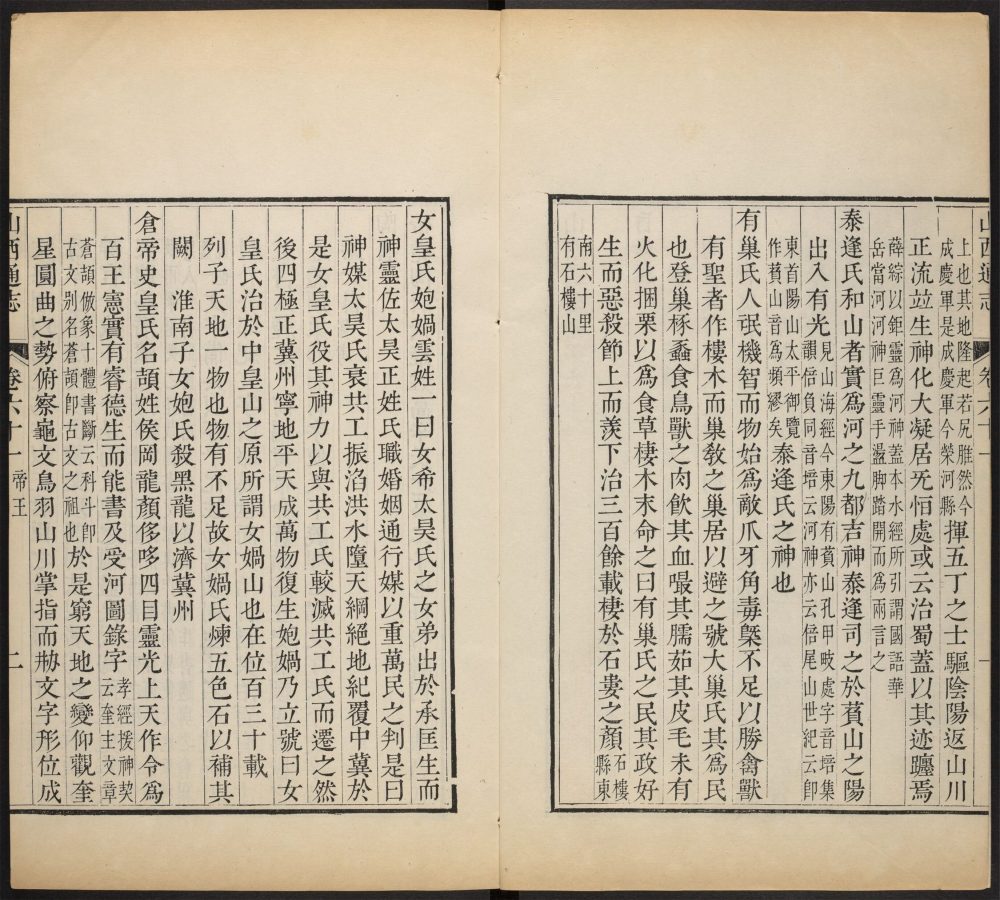 山西通志 卷六十一 一
上也其地隆起若尻脽然今
成慶軍是成慶軍今榮河縣揮五丁之士驅陰陽返山川
正流竝生神化大凝居旡恒處或云治蜀蓋以其迹躔焉
薛綜以鉅靈爲河神蓋本水經所引謂國語華
岳當河河神巨靈手盪脚踏開而爲兩言之
泰逢氏和山者實爲河之九都吉神泰逢司之於萯山之陽
出入有光見山海經今東陽有萯山孔甲畋處字音培集
韻倍負同音培云河神亦云倍尾山世紀云卽
東首陽山太平御覽
作蕡山音爲頻繆矣泰逢氏之神也
有巢氏人氓機智而物始爲敵爪牙角毒槩不足以勝禽獸
有聖者作樓木而巢敎之巢居以避之號大巢氏其爲民
也登巢椓蠡食鳥獸之肉飮其血嘬其臑茹其皮毛未有
火化捆栗以爲食草棲木末命之曰有巢氏之民其政好
生而惡殺節上而羡下治三百餘載棲於石婁之顏石樓
縣東
南六十里
有石樓山
女皇氏媤媧雲姓一曰女希太昊氏之女弟出於承匡生而
神靈佐太昊正姓氏職婚姻通行媒以重萬民之判是曰
神媒太昊氏衰共工振滔洪水墮天綱絕地紀覆中冀於
是女皇氏役其神力以與共工氏較滅共工氏而遷之然
後四極正冀州寧地平天成萬物復生媤媧乃立號曰女
皇氏治於中皇山之原所謂女媧山也在位百三十載
列子天地一物也物有不足故女媧氏煉五色石以補其
闕 淮南子女媤氏殺黑龍以濟冀州
倉帝史皇氏名頡姓侯岡龍顏侈哆四目靈光上天作令爲
百王憲實有睿德生而能書及受河圖錄字孝經援神契
云奎主文章
蒼頡倣象十體書斷云科斗卽
古文别名蒼頡卽古文之祖也於是窮天地之變仰觀奎
星圓曲之勢俯察龜文鳥羽山川掌指而刱文字形位成
山西通志 卷六十一 帝王 二